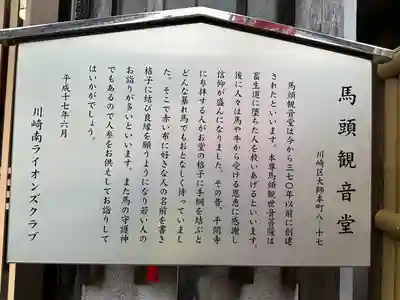 馬頭観音堂
川崎区大師本町八-十七
馬頭観音堂は今から三七〇年以前に創建
されたといいます。本尊馬頭観世音菩薩は
畜生道に堕ちた人を救いあげるといいます。
後に人々は馬や牛から受ける恩恵に感謝し
信仰が盛んになりました。その昔、平間寺
に参拝する人がお堂の格子に手綱を結ぶと
どんな暴れ馬でもおとなしく待っていまし
た。そこで赤い布に好きな人の名前を書き
格子に結び良縁を願うようになり若い人の
お詣りが多いといいます。また馬の守護神
でもあるので人参をお供えしてお詣りして
はいかがでしょう。
平成十七年六月
川崎南ライオンズクラブ